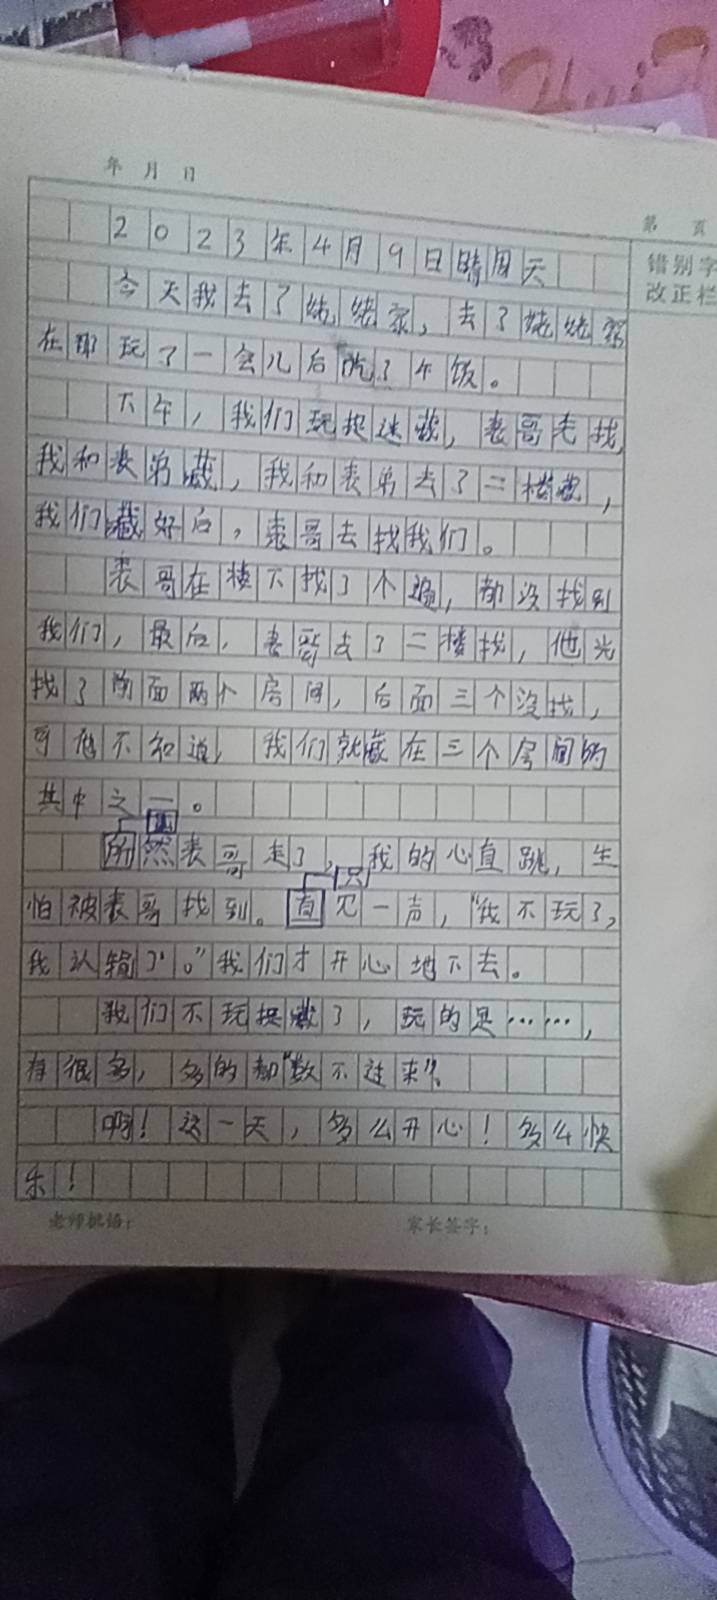 年 月 日
第 页
错别字
改正栏
2023年4月9日晴周天
今天我去了姥姥家，去了姥姥家
在那玩了一会儿后吃了午饭。
下午，我们玩捉迷藏，表哥先找，
我和表弟藏，我和表弟去了二楼藏，
我们藏好后，表哥去找我们。
表哥在楼下找了个遍，都没找到
我们，最后，表哥去了二楼找，他光
找了前面两个房间，后面三个没找，
可他不知道，我们就藏在三个房间的
其中之一。
然表哥走了，我的心直跳，生
怕被表哥找到。只
一声，“我不玩了，
我认输了。”我们才开心地下去。
我们不玩捉藏了，玩的是……，
有很多，多的都“数不过来”。
啊！这一天，多么开心！多么快
乐！
老师批语：
家长签字：